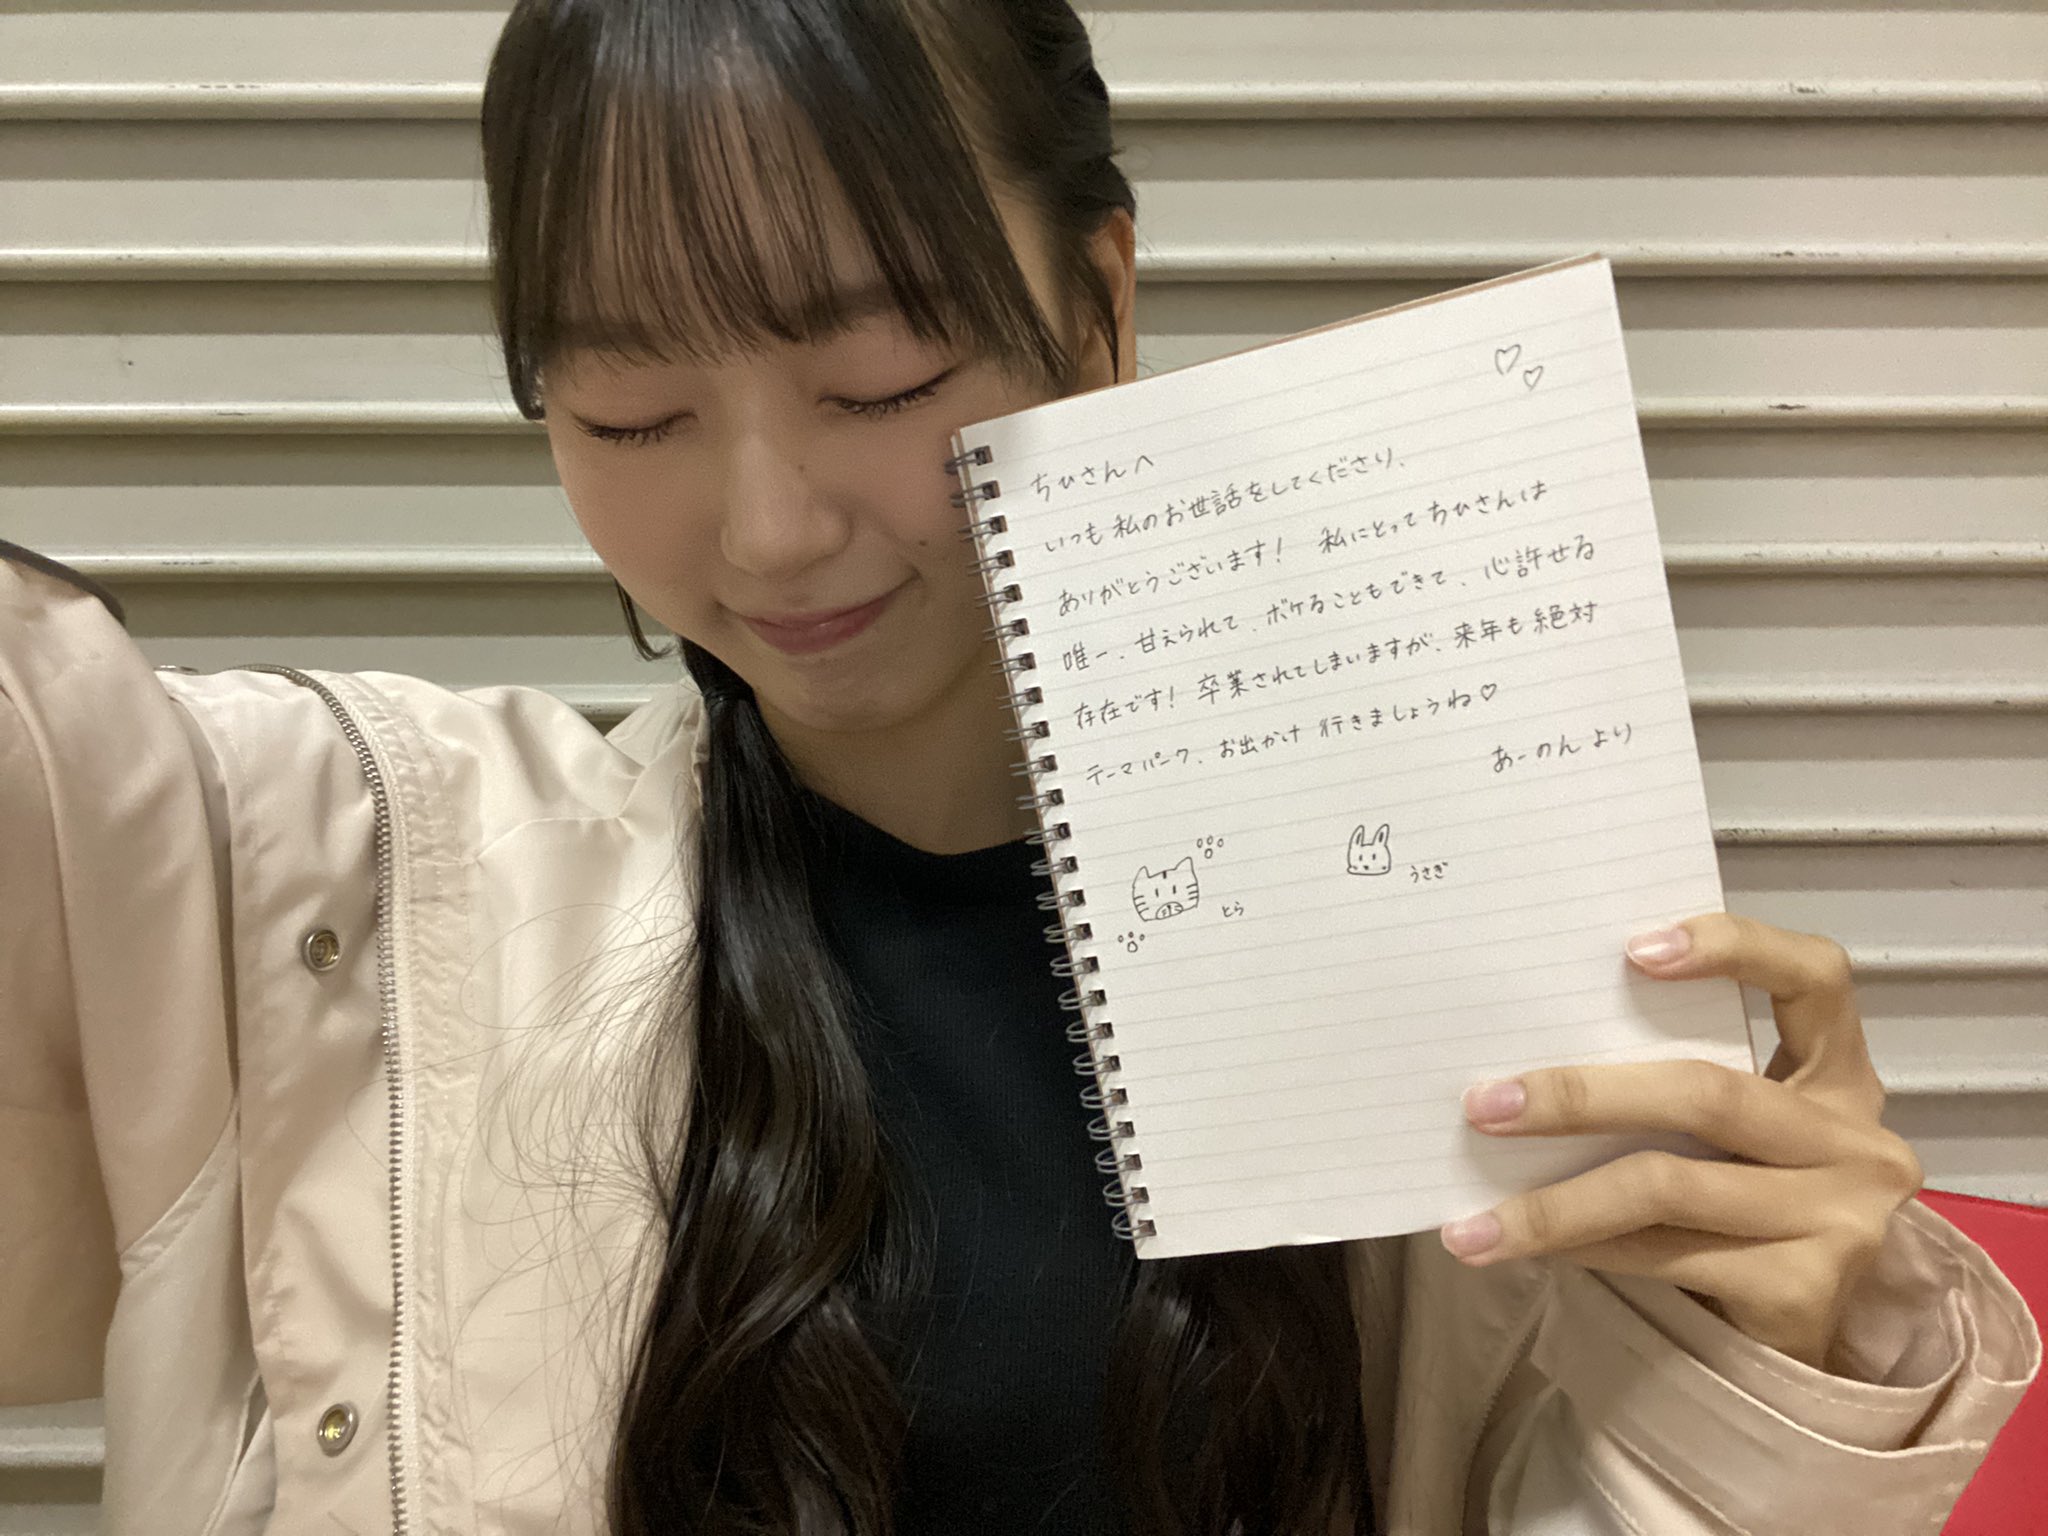 ちひさんへ
いつも私のお世話をしてくださり、
ありがとうございます! 私にとってちひさんは
唯一、甘えられて、ボケることもできて、心許せる
存在です! 卒業されてしまいますが、来年も絶対
テーマパーク、お出かけ行きましょうね♡
あーのんより
とら
うさぎ